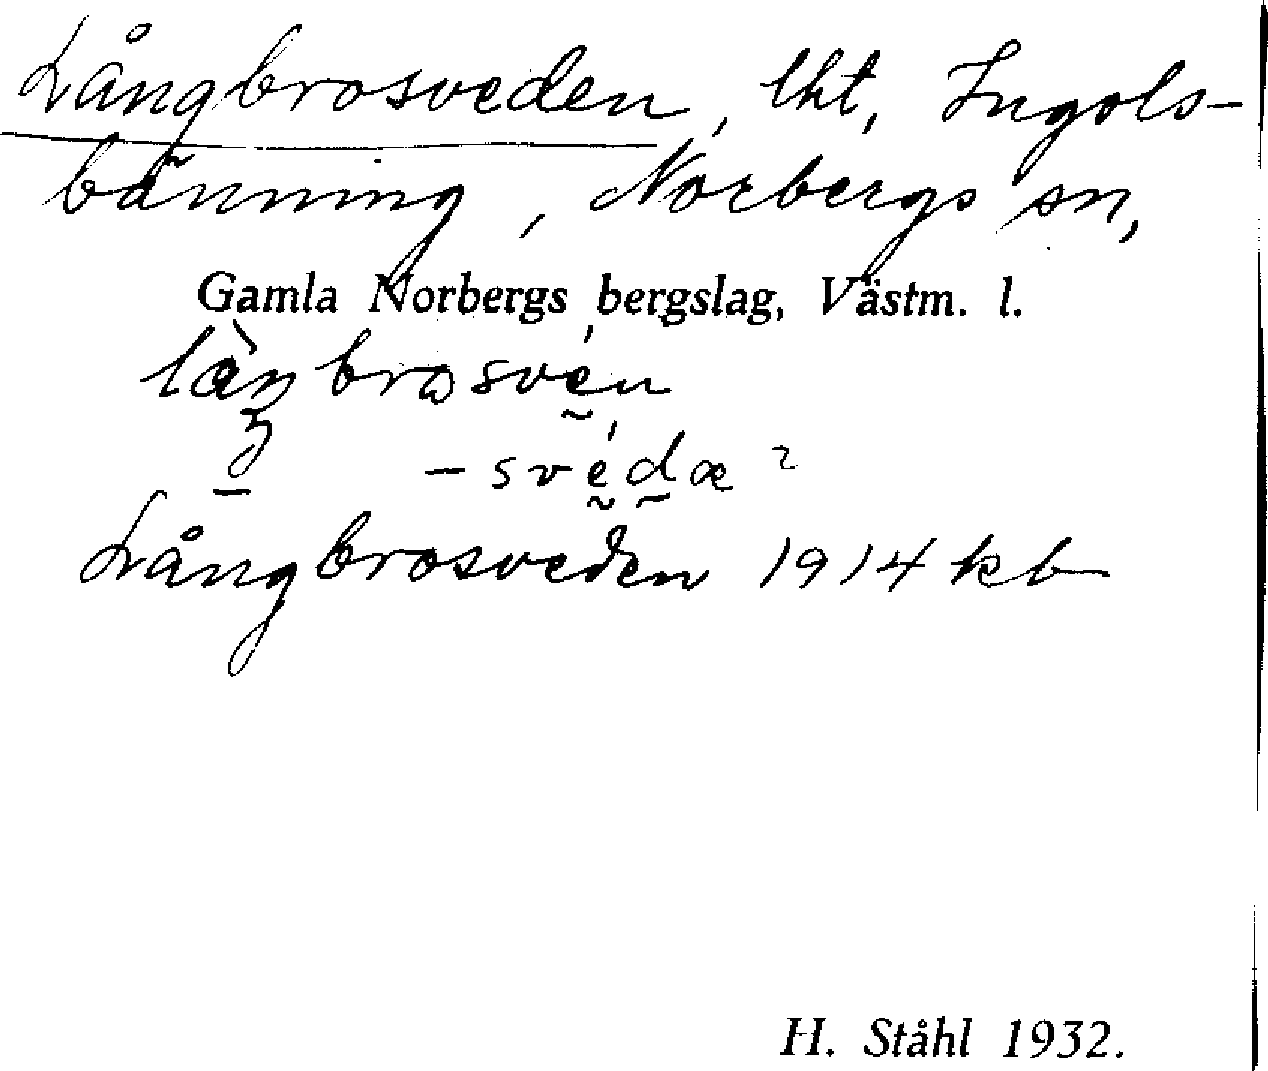 Långbrosveden, lht, Ingols-
bänning, Norbergs sn,
Gamla Norbergs bergslag, Västm. l.
làŋbrωsvén
-svédæ
Långbrosveden 1914 kb
H. Ståhl 1932.